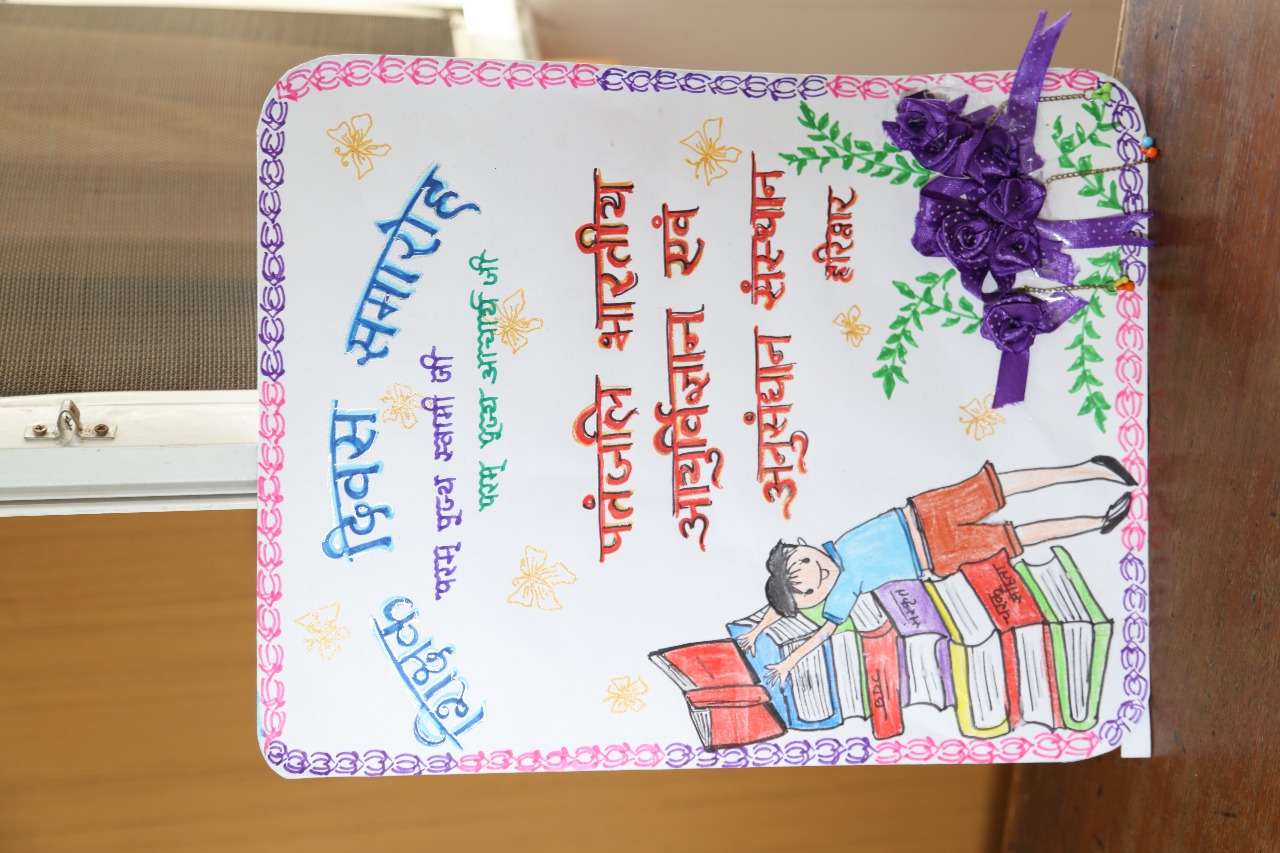 शिक्षक दिवस समारोह
परम पूज्य स्वामी जी
परम पूज्य आचार्य जी
पतंजलि भारतीय
आयुर्विज्ञान एवं
अनुसंधान संस्थान
हरिद्वार
BDC
चरक